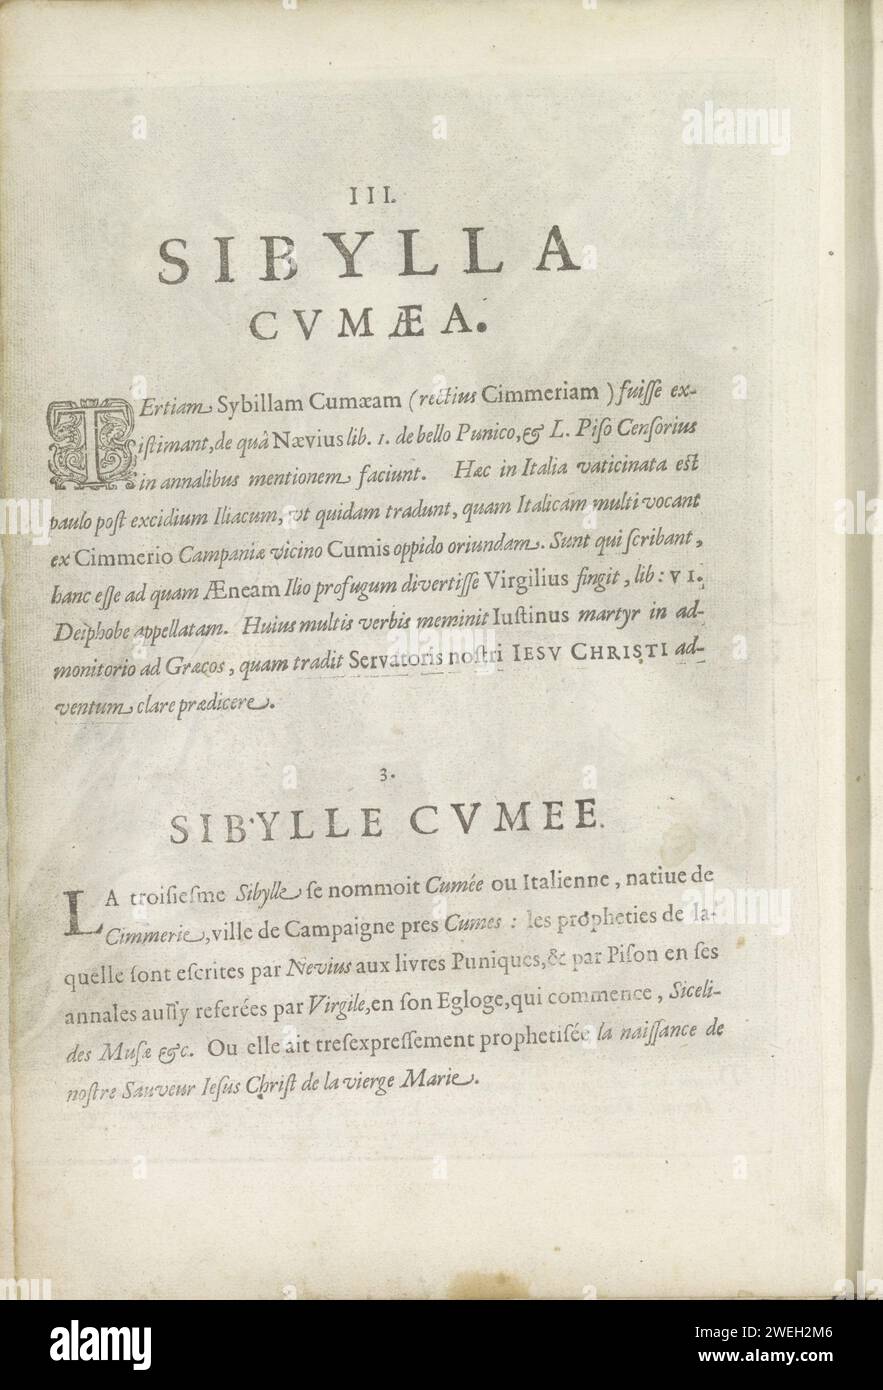 III.
SIBYLLA
CVMÆA.
TErtiam Sybillam Cumæam (rectius Cimmeriam) fuiſſe ex-
iſtimant, de quâ Nævius lib. 1. de bello Punico, & L. Piſo Cenſorius
in annalibus mentionem faciunt. Hæc in Italia vaticinata eſt
paulo poſt excidium Iliacum, vt quidam tradunt, quam Italicam multi vocant
ex Cimmerio Campaniæ vicino Cumis oppido oriundam. Sunt qui ſcribant,
hanc eſſe ad quam Æneam Ilio profugum divertiſſe Virgilius fingit, lib: VI.
Deiphobe appellatam. Huius multis verbis meminit Iuſtinus martyr in ad-
monitorio ad Græcos, quam tradit Servatoris noſtri IESV CHRISTI ad-
ventum clare prædicere.
3.
SIBYLLE CVMEE.
LA troiſieſme Sibylle ſe nommoit Cumée ou Italienne, natiue de
Cimmerie, ville de Campaigne pres Cumes : les propheties de la-
quelle ſont eſcrites par Nevius aux livres Puniques, & par Piſon en ſes
annales auſſy referées par Virgile, en ſon Egloge, qui commence, Siceli-
des Muſæ &c. Ou elle ait treſexpreſſement prophetiſée la naiſſance de
noſtre Sauveur Ieſus Chriſt de la vierge Marie.
alamy
Image ID: 2WEH2M6
www.alamy.com